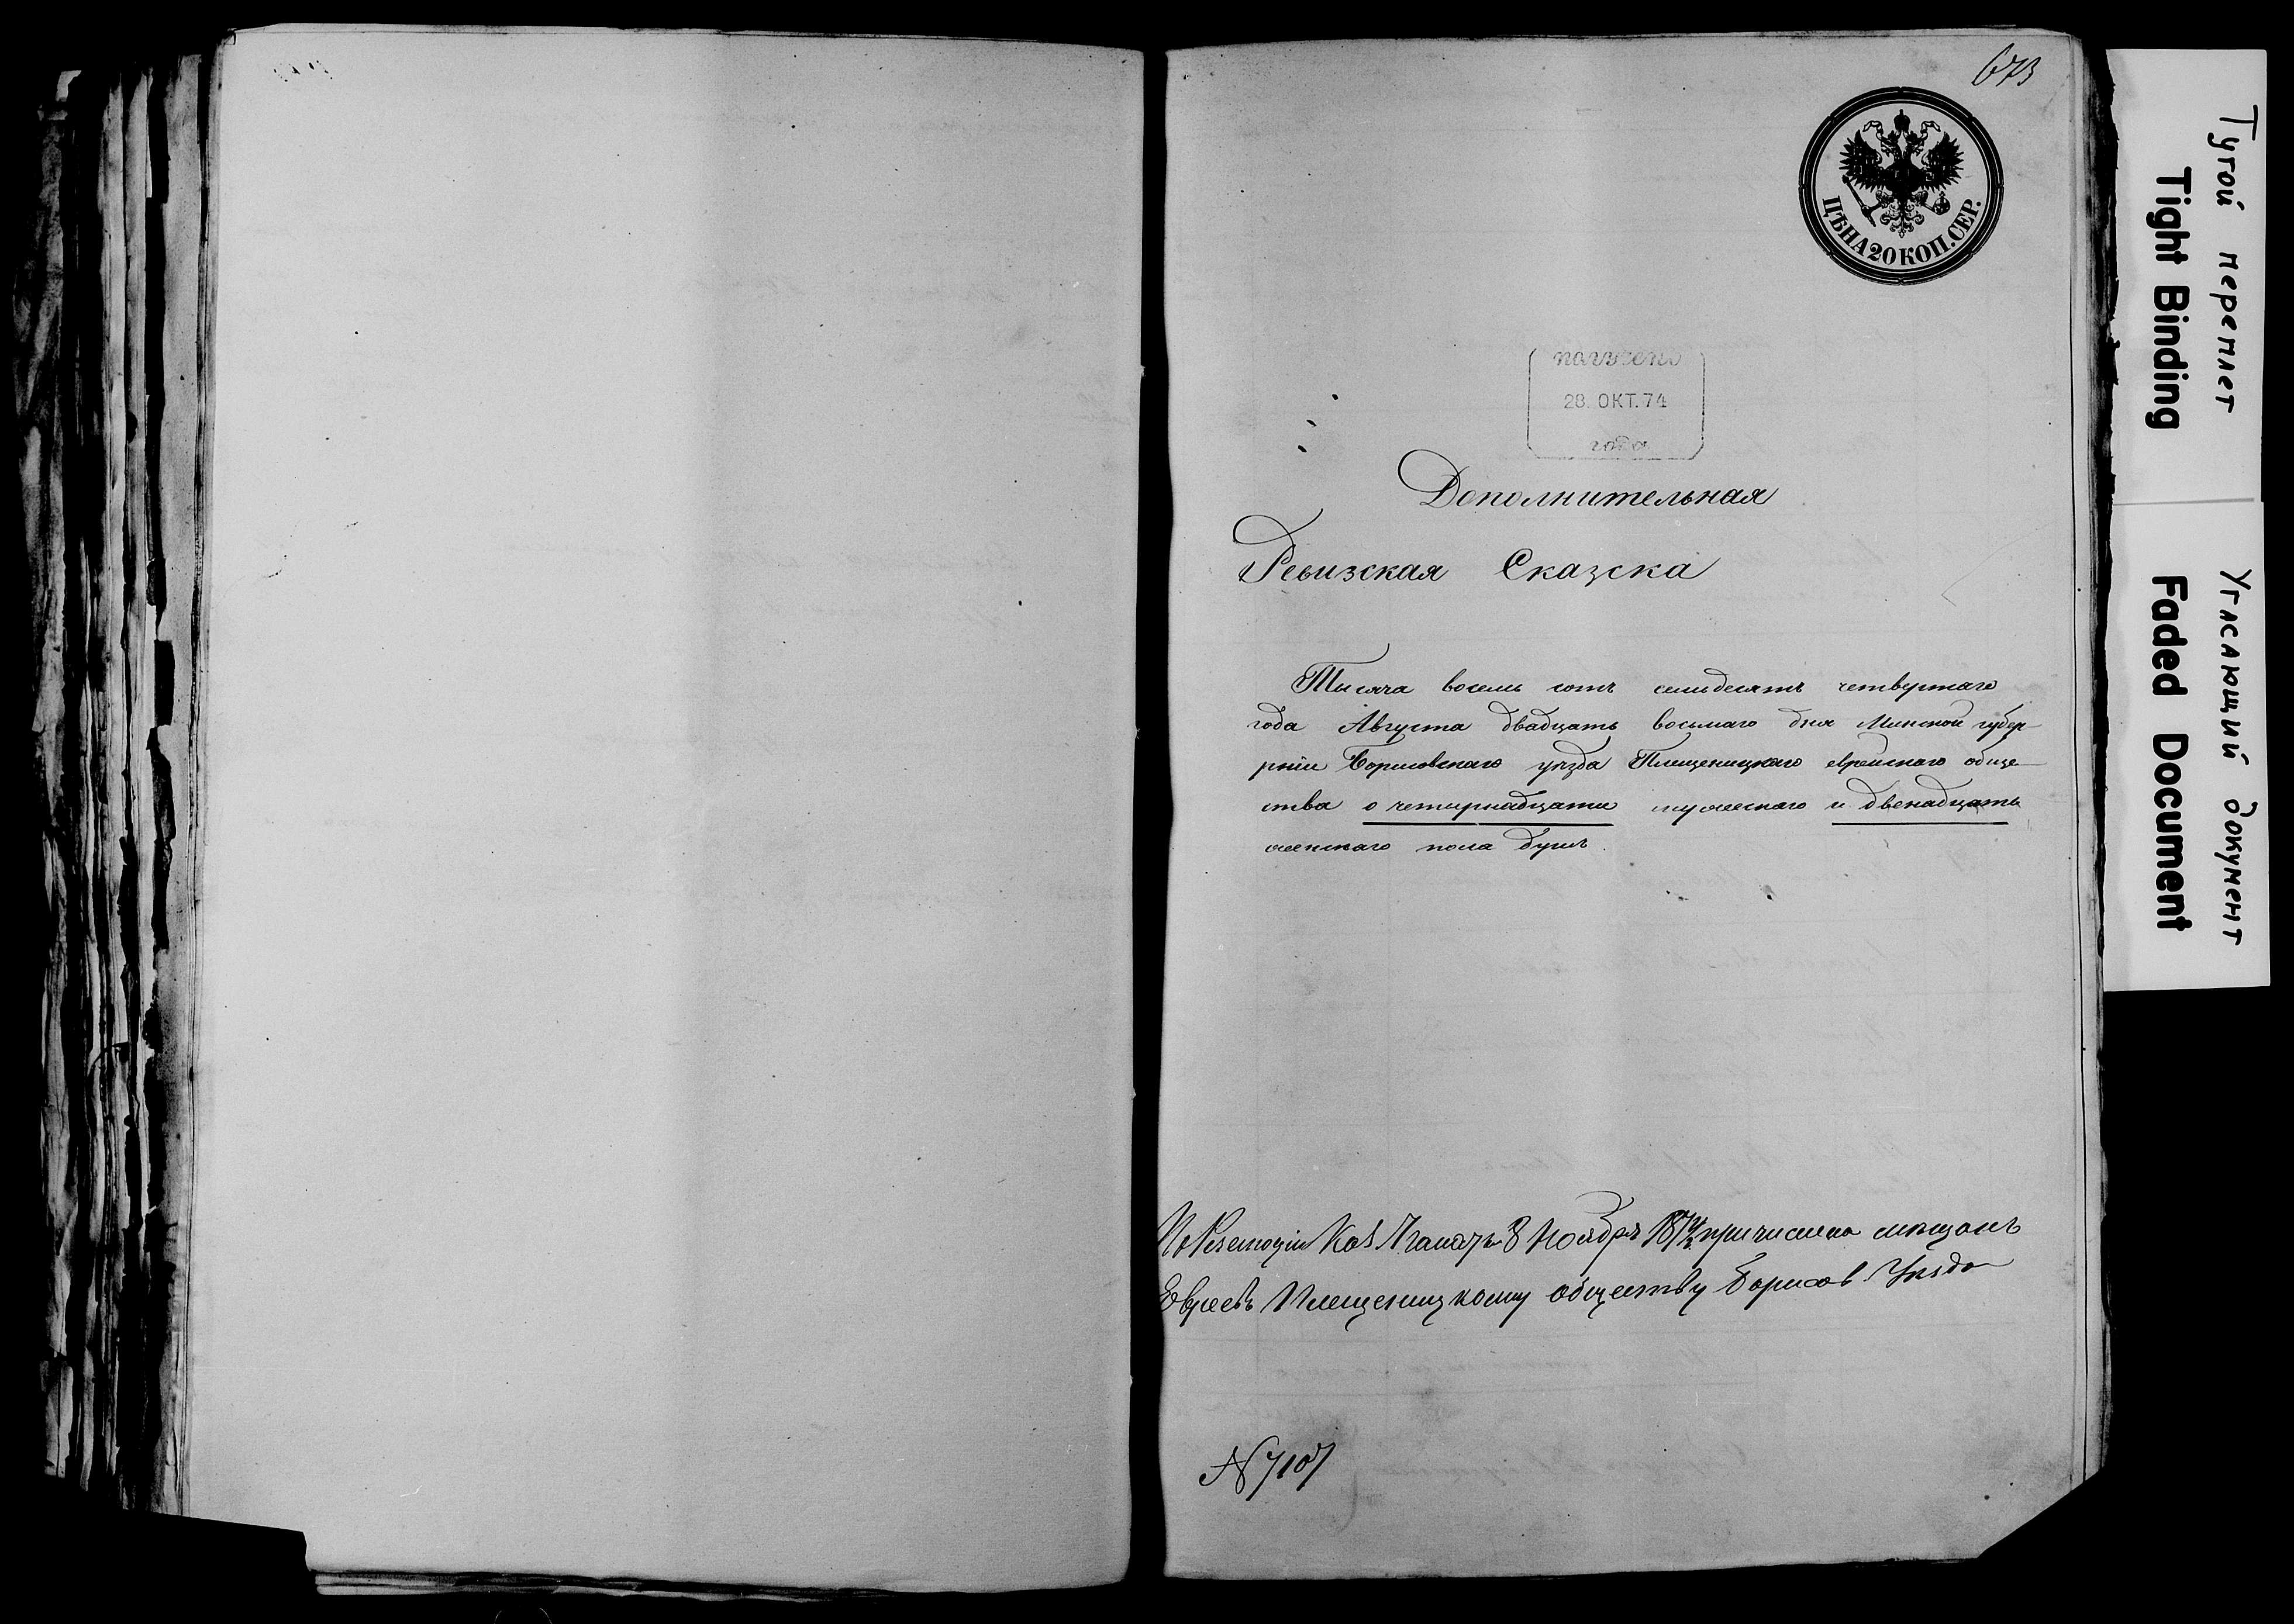 673
ЦѢНА 20 КОП. СЕР.
получено
28. ОКТ. 74
года
Дополнительная
Ревизская Сказска
Тысяча восемь сотъ семьдесятъ четвертаго
года Августа двадцать восьмаго дня Минской губер-
рніи Борисовскаго уѣзда Плещеницкаго еврейскаго обще-
ства о четырнадцати мужескаго и двенадцать
женскаго пола душъ.
По Резолюціи Каз. Палаты 8 Ноября причислена мѣщанъ
Евреевъ Плещеницкому обществу Борисов Уѣзда
N 7107
Тугой переплет
Tight Binding
Угасающий документ
Faded Document